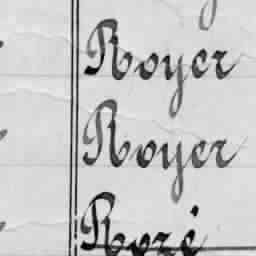 Royer
Royer
Rozé